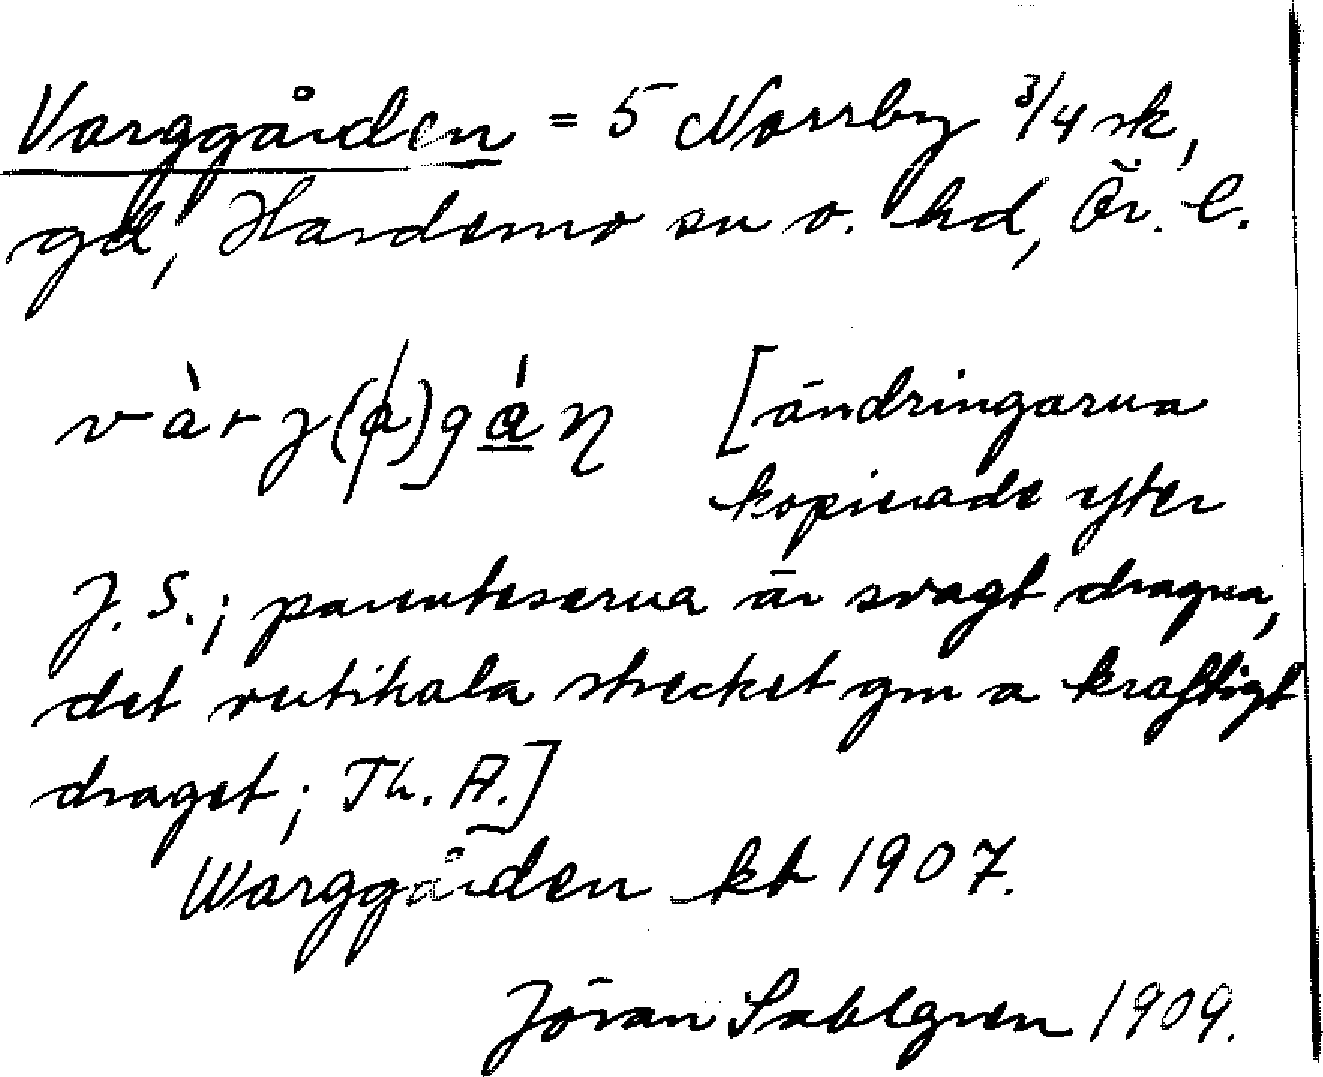 Varggården = 5 Norrby 3/4 sk,
gd, Hardemo sn o. hd, Ör. l.
[ändringarna
kopierade efter
J. S.; parenteserna är svagt dragna,
det vertikala strecket gm a kraftigt
draget; Th. A.]
Warggården kb 1907.
Jöran Sahlgren 1909.